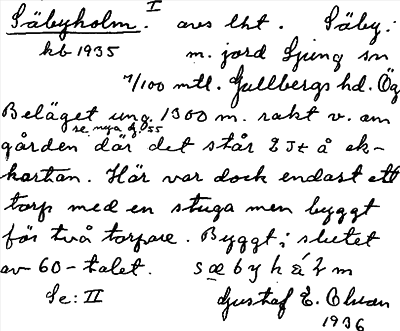 Säbyholm. I avs lht. Säby:
kb 1935 m. jord Ljung sn
7/100 mtl. Gullbergs hd. Ög
Beläget ung. 1300 m. rakt v. om
se nya
gården där det står 2 Jt å ek-
kartan. Här var dock endast ett
torp med en stuga men byggt
för två torpare. Byggt i slutet
av 60-talet.
Se: II Gustaf E. Olsson
1936